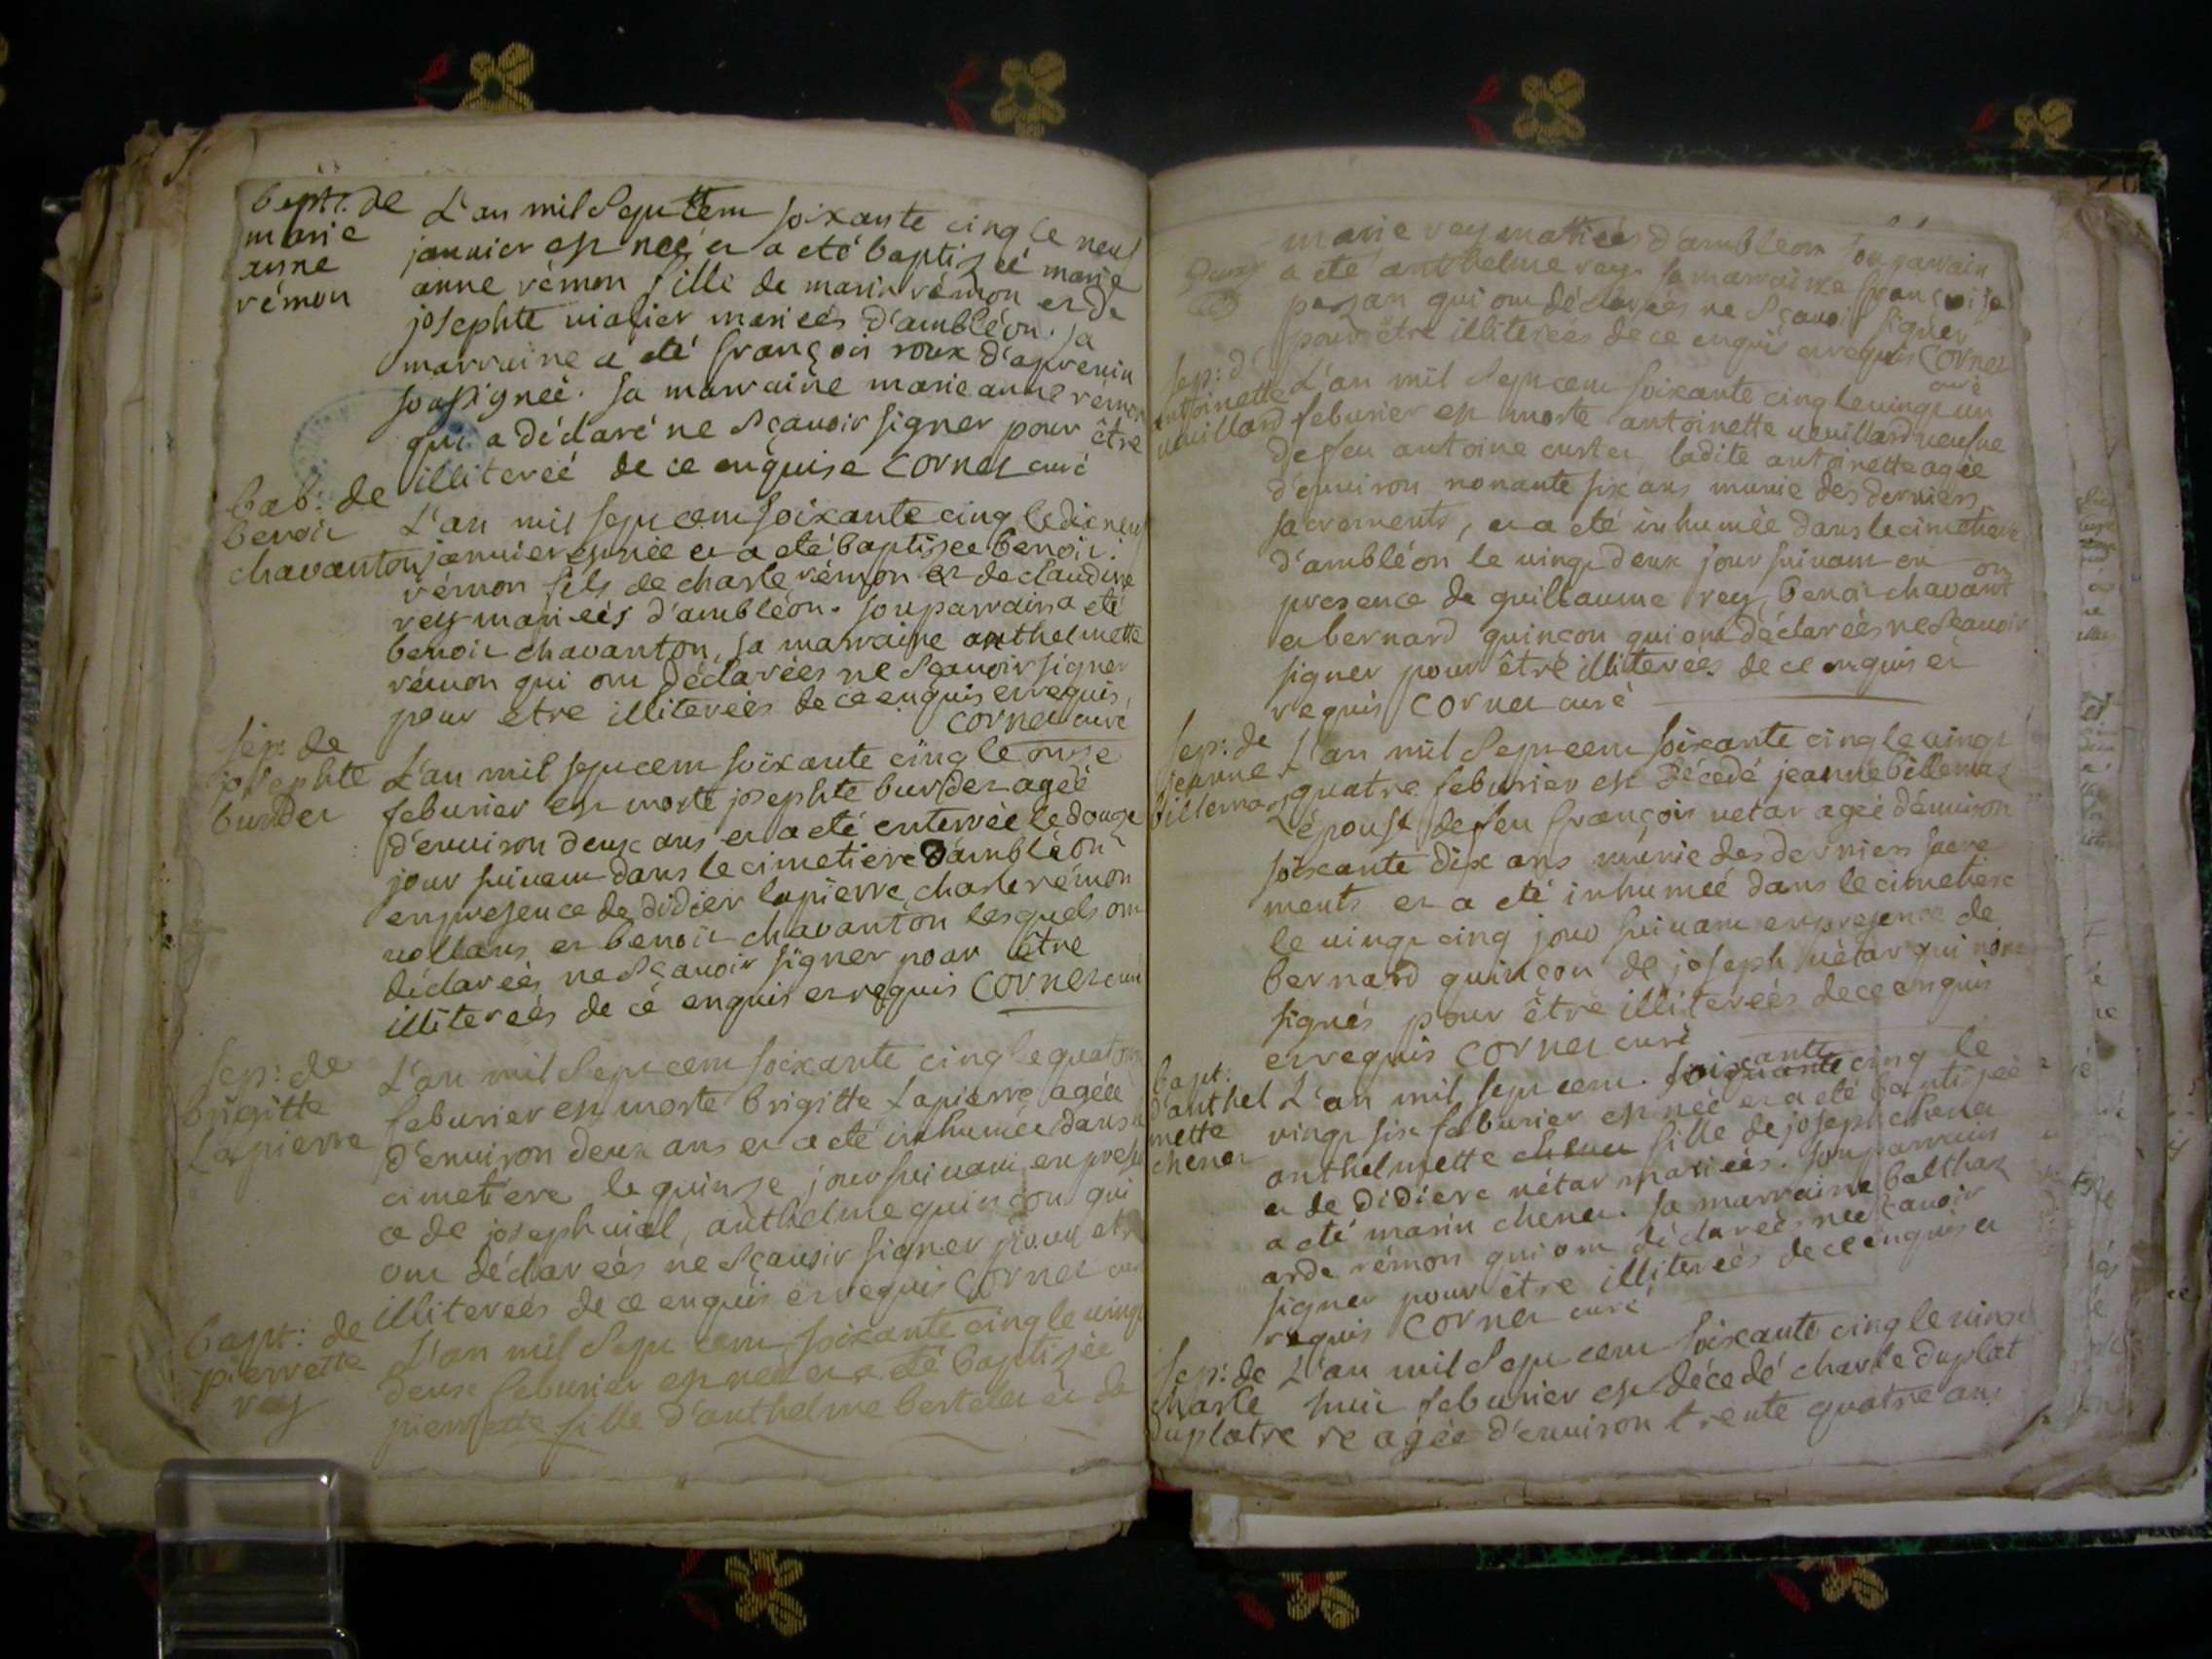 bapt: de
marie
anne
rémon
L'an mil Sept Cem soixante cinq le neuf
januier est neé et a eté baptizeé marie
anne rémon fille de marin rémon et de
josephte uiafier marieés d'ambléon. sa
marraine a eté françois roux d'aprenin
sousignée. sa marraine marie anne rémon
qui a déclaré ne Sçauoir signer pour être
illitereé de ce enquise cornet curé
bab: de
benoit
chavanton
L'an mil sept cem soixante cinq le dicneuf
januier est née et a eté baptisee benoit
rémon fils de charle rémon et de claudine
rey marieés d'ambléon. son parrain a eté
benoit chavanton, sa marraine anthelmette
rémon qui om déclareés ne Sçauoir signer
pour etre illitereés de ce enquis et requis
cornet curé
sep: de
josephte
burdet
L'an mil sept cem soixante cinq le onze
feburier est morte josephte burdet ageé
d'enuiron deux ans et a eté enterrée le douze
jour suiuam dans le cimetiere d'ambléon
en presence de didier lapierre, charle rémon
uollans et benoit chavanton lesquels om
déclareés ne Sçauoir signer pour être
illitereés de cé enquis et requis cornet curé
sep: de
brigitte
Lapierre
L'an mil Sept cem soixante cinq le quatorze
feburier est morte brigitte Lapierre ageé
d'enuiron deux ans et a eté inhumée dans le
cimetiere le quinze jour suiuam en presen
ce de joseph uial, anthelme quinçon qui
om déclareés ne Sçauoir signer pour etre
illitereés de ce enquis et requis cornet curé
bapt: de
pierrette
rey
L'an mil Sept cem soixante cinq le uingt
deux feburier est neé et a eté baptizée
pierrette fille d'anthelme bertelet et de
marie rey marieés d'ambléon son parrain
a eté anthelme rey. sa marraine françoise
pezan qui om déclareés ne Sçauoir signer
pour être illitereés de ce enquis et requis cornet
curé
sep: d'
antoinette
ueuillard
L'an mil Sept cem soixante cinq le uingt un
feburier est morte antoinette ueuillard ueufue
de feu antoine curtet, ladite antoinette agée
d'enuiron nonante six ans munie des derniers
sacrements, et a eté inhumée dans le cimetiere
d'ambléon le uingt deux jour suiuam en
presence de guillaume rey, benoit chavanton
et bernard quinçon qui om déclareés ne Sçauoir
signer pour être illitereés de ce enquis et
requis cornet curé
sep: de
jeanne
billemaz
L'an mil Sept cem soixante cinq le uingt
quatre feburier est Décédé jeanne billemaz
épouse de feu françois uetar ageé d'enuiron
soixante dix ans munie des derniers sacre
ments et a eté inhumeé dans le cimetiere
le uingt cinq jour suiuam en presence de
bernard quinçon de joseph uétar qui n'om
signés pour être illitereés de ce enquis
et requis cornet curé
bapt:
d'anthel
mette
chenet
L'an mil sept cem. soixante cinq le
vingt six feburier est neé et a eté baptiseé
anthelmette chenet fille de joseph chenet
et de didiere uétar marieés. son parrain
a eté marin chenet. sa marraine balthaz
arde rémon qui om déclareés ne sçauoir
signer pour être illitereés de ce enquis et
requis cornet curé
sep: de
charle
duplatre
L'an mil Sept cem soixante cinq le uingt
huit feburier est décedé charle duplat
re agée d'enuiron trente quatre ans